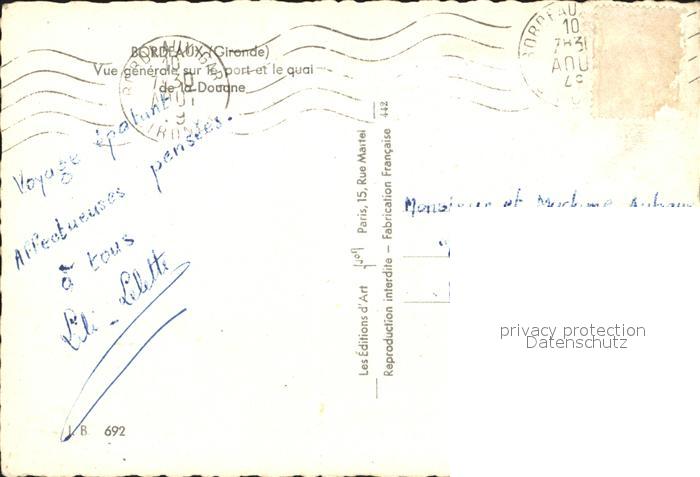 BORDEAUX (Gironde)
Vue générale sur le port et le quai
de la Douane
BORDEAUX GARE
10
7H30
AOUT
GIRONDE
BORDEAUX
10
7H30
AOU
49
Voyage épatant
Affectueuses pensées.
à tous
Lili - Lilette
I. B. 692
Les Éditions d'Art Yvon Paris, 15, Rue Martel
Reproduction interdite — Fabrication Française 442
Monsieur et Madame
privacy protection
Datenschutz